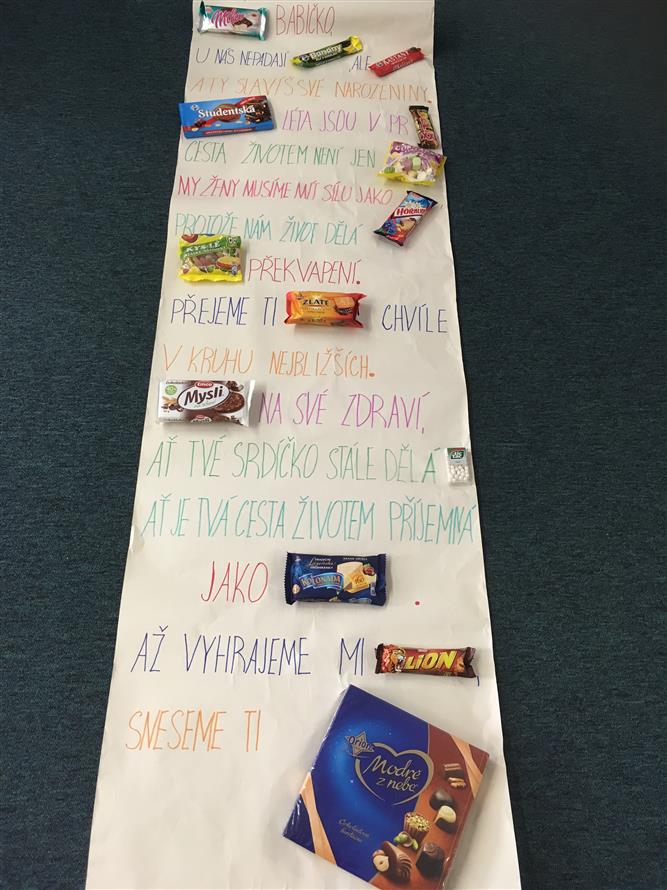 Milka BABIČKO,
U NÁS NEPADAJÍ Banány, ALE KAŠTANY
A TY SLAVÍŠ SVÉ NAROZENINY.
Studentská LÉTA JSOU V PR
CESTA ŽIVOTEM NENÍ JEN
MY ŽENY MUSÍME MÍT SÍLU JAKO HORALKY
PROTOŽE NÁM ŽIVOT DĚLÁ
KYSELÉ PŘEKVAPENÍ.
PŘEJEME TI ZLATÉ CHVÍLE
V KRUHU NEJBLIŽŠÍCH.
emco Mysli NA SVÉ ZDRAVÍ,
AŤ TVÉ SRDÍČKO STÁLE DĚLÁ TIC TAC
AŤ JE TVÁ CESTA ŽIVOTEM PŘÍJEMNÁ
JAKO KOLONÁDA .
AŽ VYHRAJEME MI LION ,
SNESEME TI Orion Modré z nebe